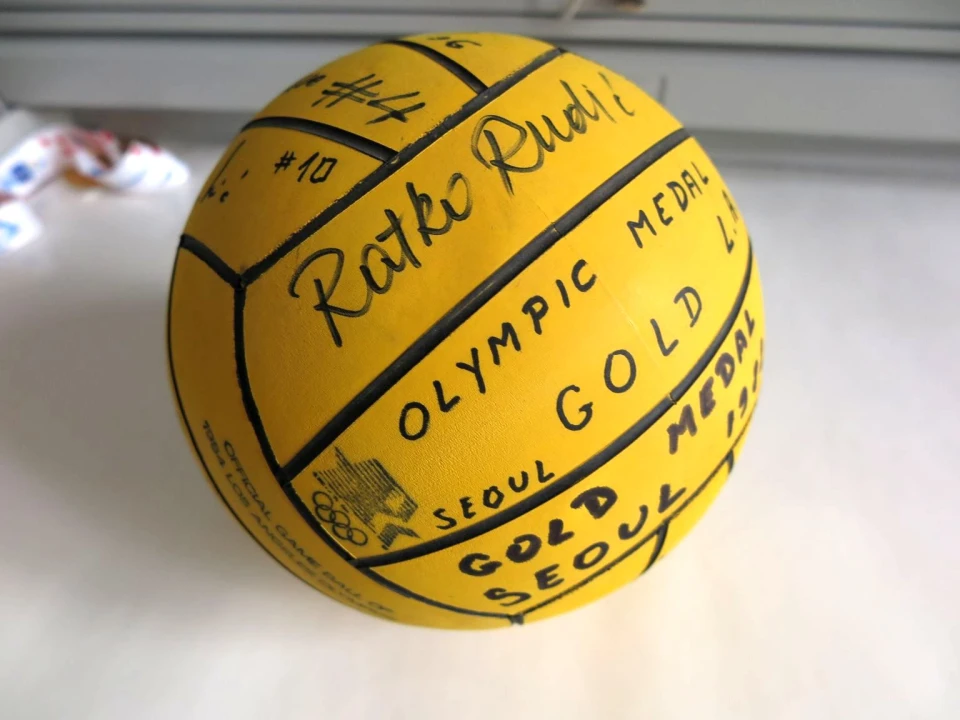 16
#4
#10
Ratko Rudić
OLYMPIC MEDAL
GOLD L.A
SEOUL
GOLD MEDAL
SEOUL 198
OFFICIAL GAME BALL OF
1984 LOS ANGELES